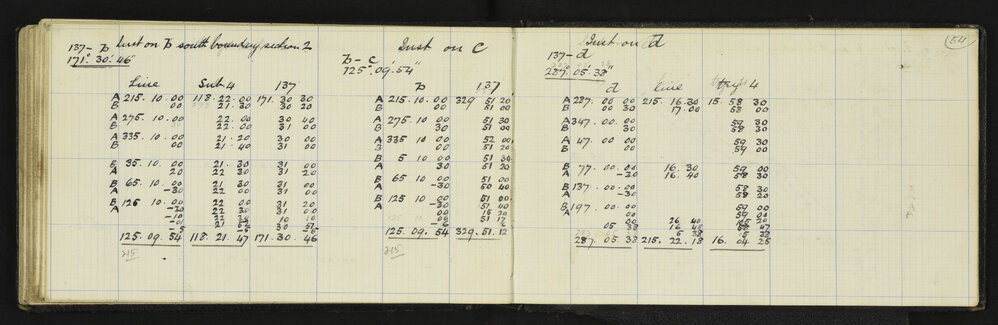 137 - b Inst on b south boundary section 2
171° 30' 46"
Line Sub 4 137
A 215. 10. 00 118. 22. 00 171. 30 30
B 00 21. 30 30 20
A 275. 10. 00 22. 00 30 40
B 00 22. 00 31 00
A 335. 10 00 21. 20 30 00
B 00 21. 40 31 00
B 35. 10. 00 21. 30 31 00
A 20 22 30 31 20
B 65. 10. 00 21 30 31 00
A -30 22 00 31 00
B 125 10 00 22 00 31 20
A -30 22 30 31 00
125. 09. 54 118. 21. 47 171. 30. 46
215
Inst on C
b - c
125° 09' 54"
b 137
A 215. 10. 00 329 51 20
B 00 51 00
A 275 10 00 51 30
B 30 51 00
A 335 10 00 52 00
B 00 51 20
B 5 10 00 51 30
A 30 51 20
B 65 10 00 51 00
A -30 50 40
B 125 10 00 51 00
A -30 51 40
125. 09. 54 329. 51. 12
215
54
Inst on d
137 - d
287° 05' 33"
d line 4
A 287. 00 00 215. 16. 30 15. 58 30
B 00 30 17. 00 58 00
A 347. 00. 00 59 30
B 30 58 30
A 47. 00. 00 59 30
B 00 59 00
B 77. 00. 00 16. 30 59 00
A -20 16 40 58 30
B 137. 00. 00 58 30
A -30 58 20
B 197. 00. 00 59 00
A 00 59 00
287. 05. 33 215. 22. 18 16. 04 25